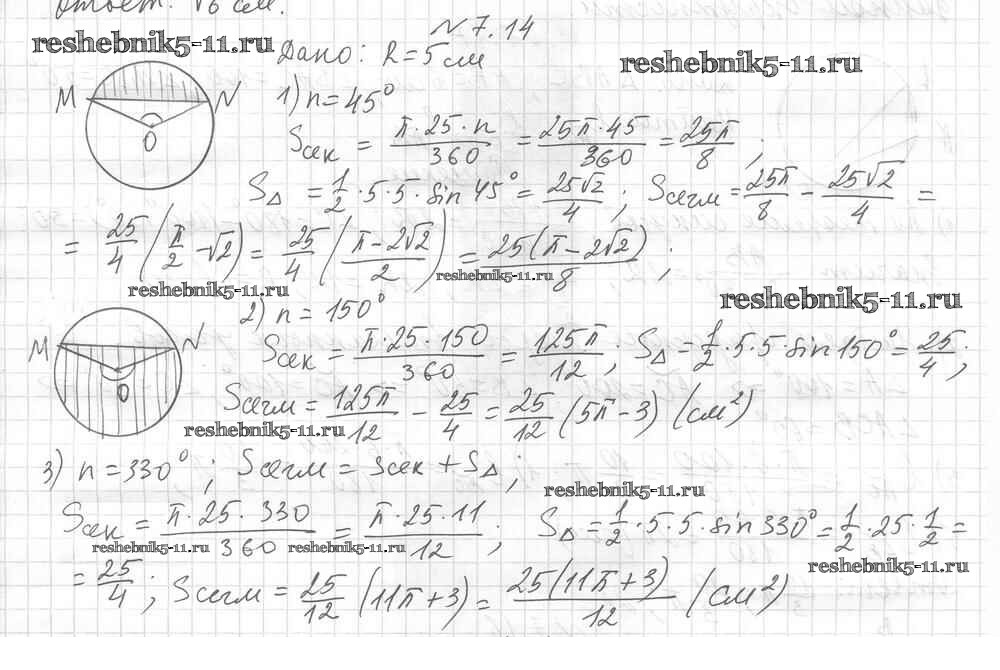 Ответ: √6 см.
N 7.14
reshebnik5-11.ru
Дано: R=5 см
reshebnik5-11.ru
M N
O
1) n=45°
Sсек = π·25·n/360 = 25π·45/360 = 25π/8 ;
S△ = 1/2 ·5·5·sin 45° = 25√2/4 ; Sсегм = 25π/8 − 25√2/4 =
= 25/4 (π/2 −√2) = 25/4 (π−2√2/2) = 25(π−2√2)/8 ;
reshebnik5-11.ru
reshebnik5-11.ru
reshebnik5-11.ru
2) n = 150°
M N
O
Sсек = π·25·150/360 = 125π/12 ; S△ = 1/2 ·5·5·sin 150° = 25/4 ;
Sсегм = 125π/12 − 25/4 = 25/12 (5π−3) (см²)
reshebnik5-11.ru
3) n=330° ; Sсегм = Sсек + S△ ;
reshebnik5-11.ru
Sсек = π·25·330/360 = π·25·11/12 ; S△ = 1/2 ·5·5·sin 330° = 1/2 ·25· 1/2 =
reshebnik5-11.ru reshebnik5-11.ru
reshebnik5-11.ru
= 25/4 ; Sсегм = 25/12 (11π+3) = 25(11π+3)/12 (см²)